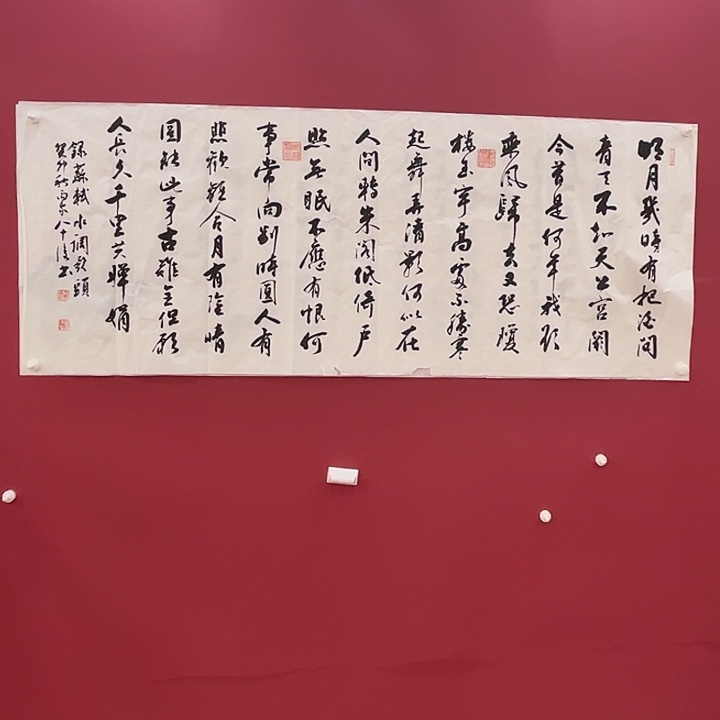 明月幾時有把酒問
青天不知天上宮闕
今昔是何年我欲
乘風歸去又恐瓊
樓玉宇高處不勝寒
起舞弄清影何似在
人間轉朱閣低倚戶
照無眠不應有恨何
事常向别時圓人有
悲歡離合月有陰晴
圓缺此事古難全但願
人長久千里共嬋娟
錄蘇軾水調歌頭
癸卯秋